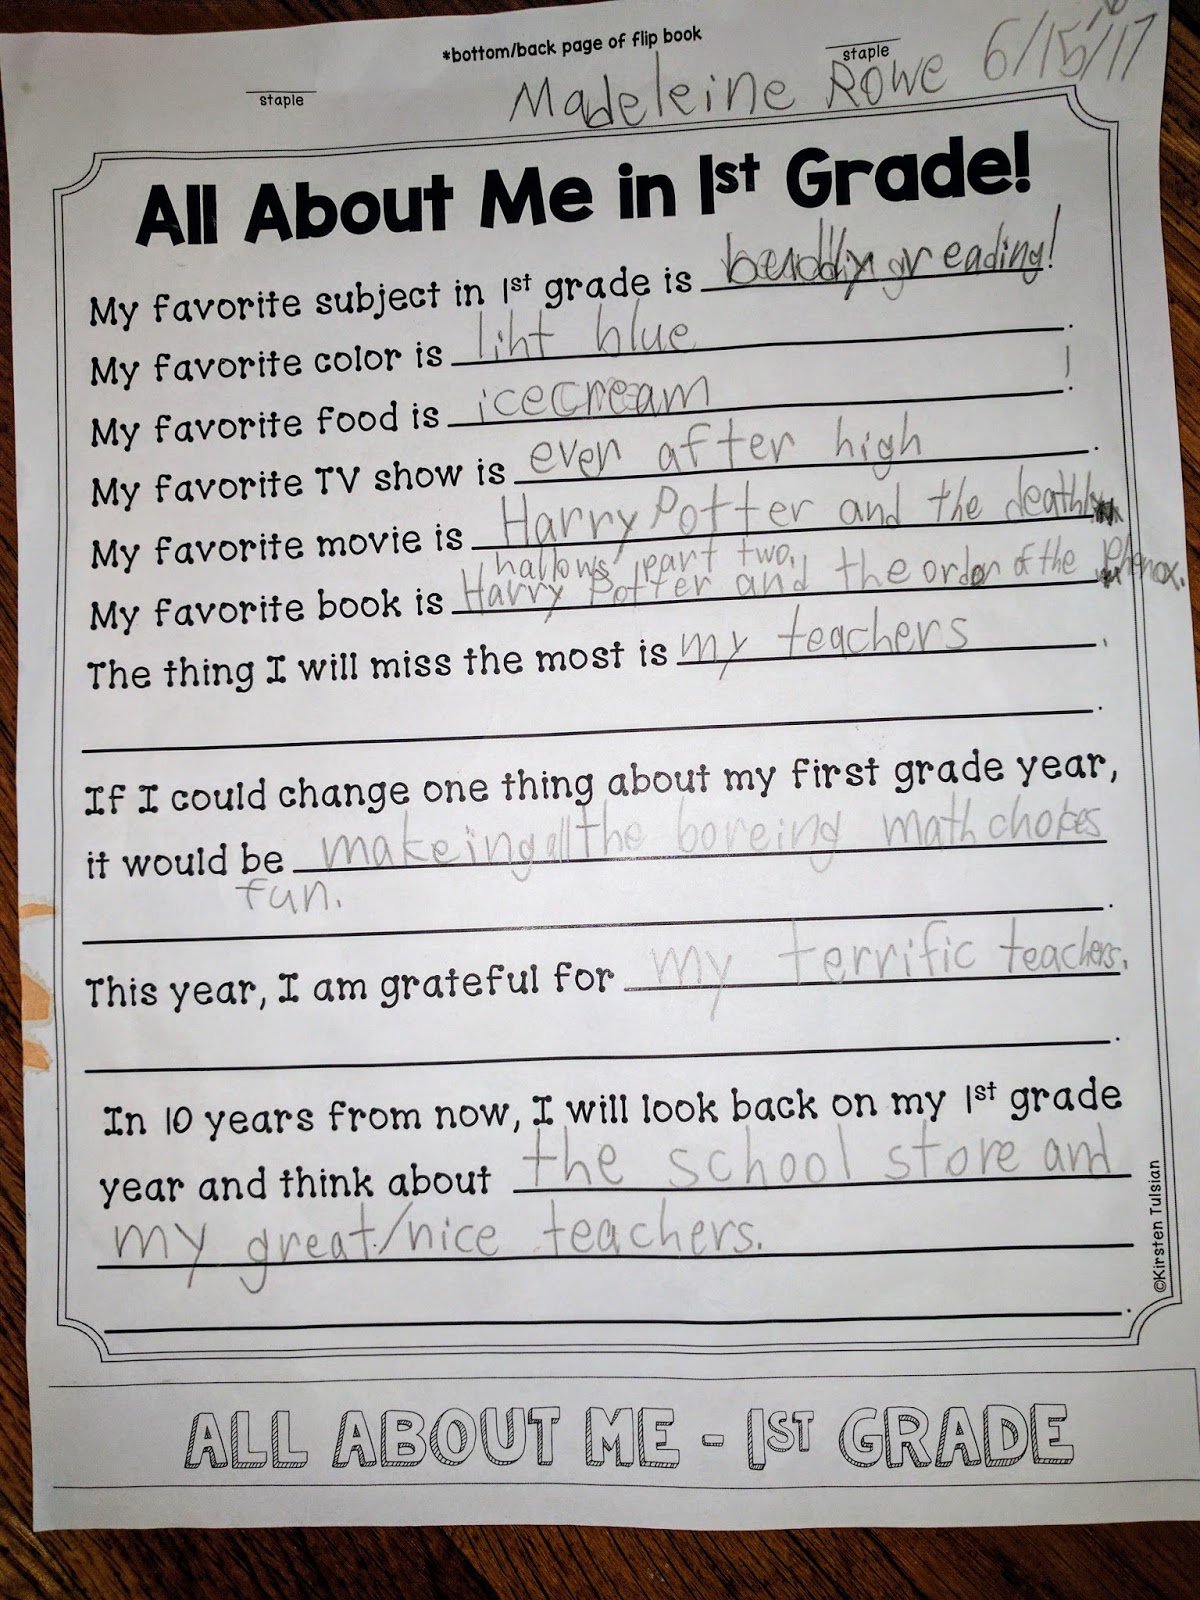 *bottom/back page of flip book
staple staple
Madeleine Rowe 6/15/17
All About Me in 1st Grade!
My favorite subject in 1st grade is reading!
My favorite color is liht blue.
My favorite food is icecream.
My favorite TV show is ever after high.
My favorite movie is Harry Potter and the deathly
hallows part two.
My favorite book is Harry Potter and the order of the phenox.
The thing I will miss the most is my teachers.
.
If I could change one thing about my first grade year,
it would be makeing all the boreing math chokes
fun.
.
This year, I am grateful for my terrific teachers.
.
In 10 years from now, I will look back on my 1st grade
year and think about the school store and
my great/nice teachers.
.
©Kirsten Tulsian
ALL ABOUT ME - 1ST GRADE